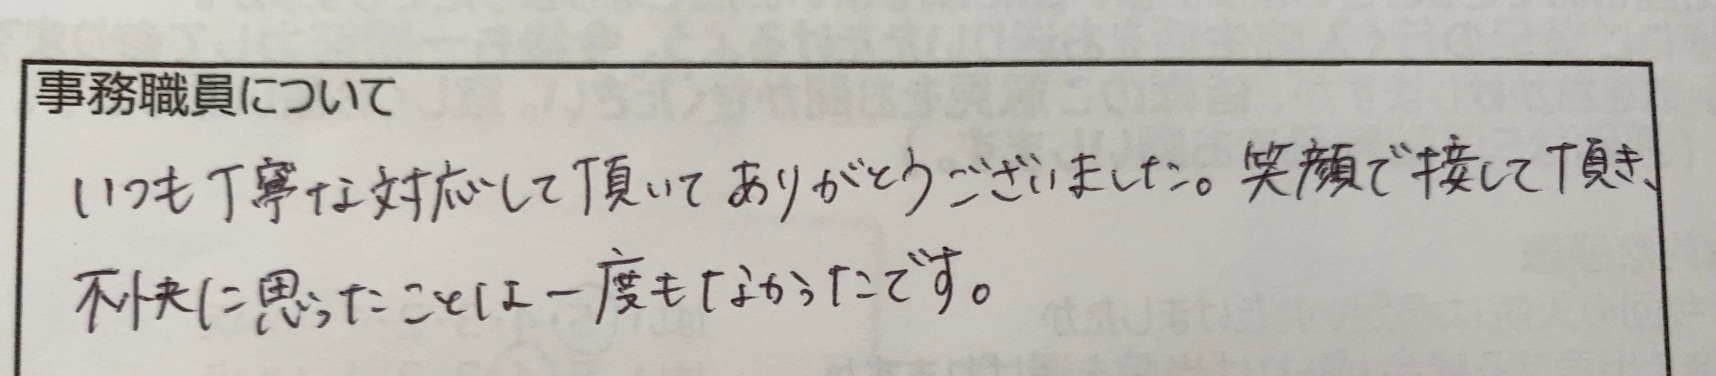 事務職員について
いつも丁寧な対応して頂いてありがとうございました。笑顔で接して頂き、
不快に思ったことは一度もなかったです。